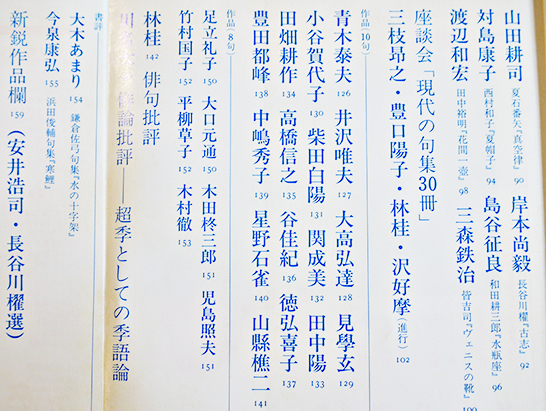 山田耕司 夏石番矢『真空律』 90 岸本尚毅 長谷川櫂『古志』 92
対島康子 西村和子『夏帽子』 94 島谷征良 和田耕三郎『水瓶座』 96
渡辺和宏 田中裕明『花間一壺』 98 三森鉄治 皆吉司『ヴェニスの靴』 100
座談会「現代の句集30冊」
三枝昂之・豊口陽子・林桂・沢好摩(進行) 102
作品10句
青木泰夫 126 井沢唯夫 127 大高弘達 128 見學玄 129
小谷賀代子 130 柴田白陽 131 関成美 132 田中陽 133
田畑耕作 134 高橋信之 135 谷佳紀 136 徳弘喜子 137
豊田都峰 138 中嶋秀子 139 星野石雀 140 山縣樵二 141
作品8句
足立礼子 150 大口元通 150 木田柊三郎 151 児島照夫 151
竹村国子 152 平柳草子 152 木村徹 153
林桂 142 俳句批評
論批評——超季としての季語論
書評
大木あまり 154 鎌倉佐弓句集『水の十字架』
今泉康弘 155 浜田俊輔句集『寒鯉』
新鋭作品欄 159 (安井浩司・長谷川櫂選)